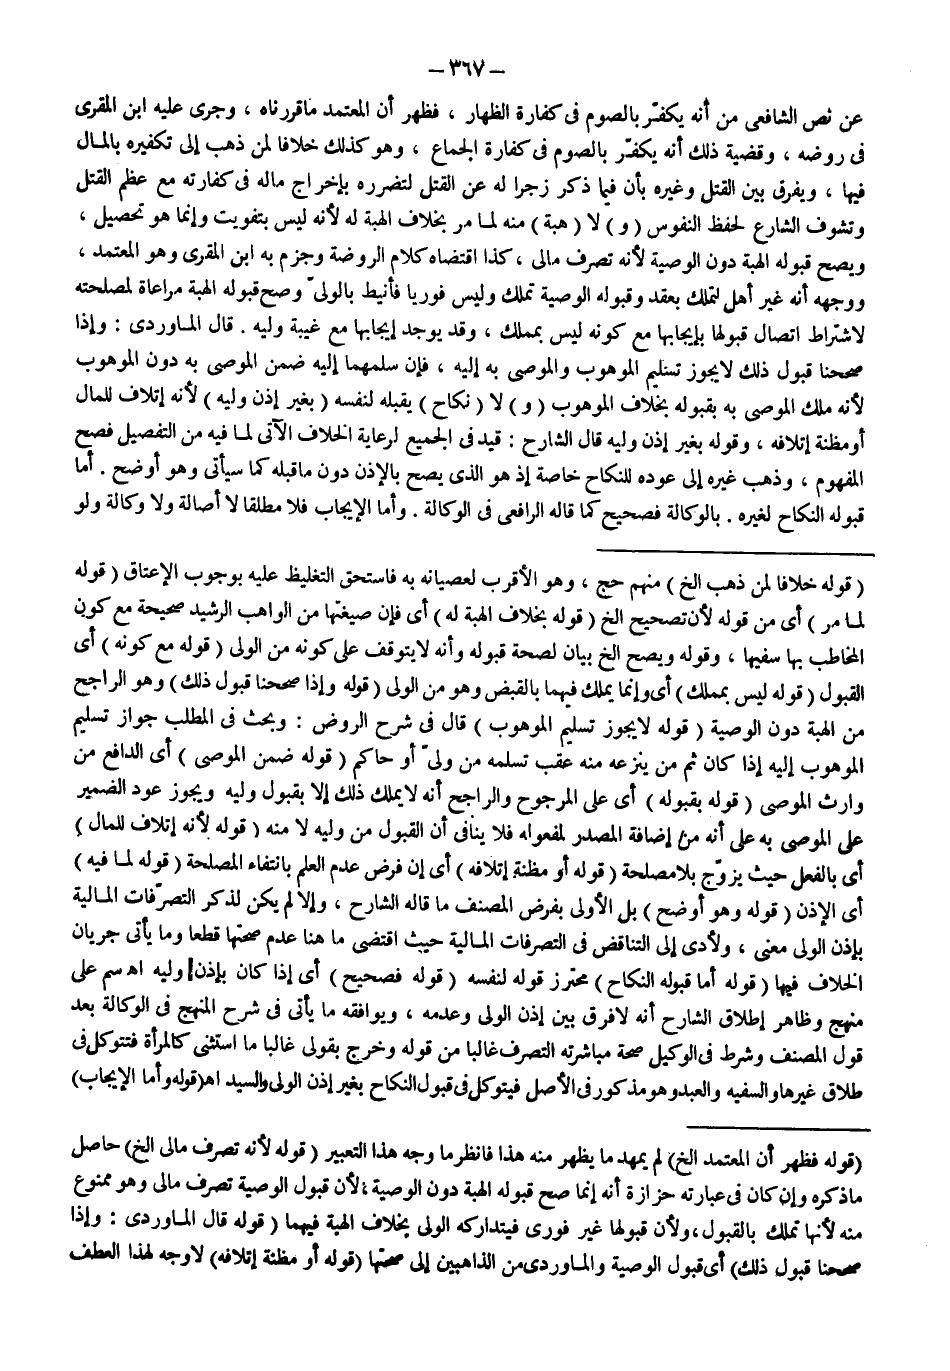 – ٣٦٧ –
عن نص الشافعى من أنه يكفّر بالصوم فى كفارة الظهار ، فظهر أن المعتمد ماقررناه ، وجرى عليه ابن المقرى
فى روضه ، وقضية ذلك أنه يكفّر بالصوم فى كفارة الجماع ، وهو كذلك خلافا لمن ذهب إلى تكفيره بالمال
فيها ، ويفرق بين القتل وغيره بأن فيما ذكر زجرا له عن القتل لتضرره بإخراج ماله فى كفارته مع عظم القتل
وتشوف الشارع لحفظ النفوس ( و ) لا ( هبة ) منه لما مر بخلاف الهبة له لأنه ليس بتفويت وإنما هو تحصيل ،
ويصح قبوله الهبة دون الوصية لأنه تصرف مالى ، كذا اقتضاه كلام الروضة وجزم به ابن المقرى وهو المعتمد ،
ووجهه أنه غير أهل لتملك بعقد وقبوله الوصية تملك وليس فوريا فأنيط بالولىّ وصح قبوله الهبة مراعاة لمصلحته
لاشتراط اتصال قبولها بإيجابها مع كونه ليس بمملك ، وقد يوجد إيجابها مع غيبة وليه . قال الماوردى : وإذا
صححنا قبول ذلك لايجوز تسليم الموهوب والموصى به إليه ، فإن سلمهما إليه ضمن الموصى به دون الموهوب
لأنه ملك الموصى به بقبوله بخلاف الموهوب ( و ) لا ( نكاح ) يقبله لنفسه ( بغير إذن وليه ) لأنه إتلاف للمال
أومظنة إتلافه ، وقوله بغير إذن وليه قال الشارح : قيد فى الجميع لرعاية الخلاف الآتى لما فيه من التفصيل فصح
المفهوم ، وذهب غيره إلى عوده للنكاح خاصة إذ هو الذى يصح بالإذن دون ماقبله كما سيأتى وهو أوضح . أما
قبوله النكاح لغيره . بالوكالة فصحيح كما قاله الرافعى فى الوكالة . وأما الإيجاب فلا مطلقا لا أصالة ولا وكالة ولو
( قوله خلافا لمن ذهب الخ ) منهم حج ، وهو الأقرب لعصيانه به فاستحق التغليظ عليه بوجوب الإعتاق ( قوله
لما مر ) أى من قوله لأن تصحيح الخ ( قوله بخلاف الهبة له ) أى فإن صيغتها من الواهب الرشيد صحيحة مع كون
المخاطب بها سفيها ، وقوله ويصح الخ بيان لصحة قبوله وأنه لايتوقف على كونه من الولى ( قوله مع كونه ) أى
القبول ( قوله ليس بمملك ) أى وإنما يملك فيهما بالقبض وهو من الولى ( قوله وإذا صححنا قبول ذلك ) وهو الراجح
من الهبة دون الوصية ( قوله لايجوز تسليم الموهوب ) قال فى شرح الروض : وبحث فى المطلب جواز تسليم
الموهوب إليه إذا كان ثم من ينزعه منه عقب تسلمه من ولىّ أو حاكم ( قوله ضمن الموصى ) أى الدافع من
وارث الموصى ( قوله بقبوله ) أى على المرجوح والراجح أنه لايملك ذلك إلا بقبول وليه ويجوز عود الضمير
على الموصى به على أنه من إضافة المصدر لمفعوله فلا ينافى أن القبول من وليه لا منه ( قوله لأنه إتلاف للمال )
أى بالفعل حيث يزوّج بلامصلحة ( قوله أو مظنة إتلافه ) أى إن فرض عدم العلم بانتفاء المصلحة ( قوله لما فيه )
أى الإذن ( قوله وهو أوضح ) بل الأولى بفرض المصنف ما قاله الشارح ، وإلا لم يكن لذكر التصرّفات المالية
بإذن الولى معنى ، ولأدى إلى التناقض فى التصرفات المالية حيث اقتضى ما هنا عدم صحتها قطعا وما يأتى جريان
الخلاف فيها ( قوله أما قبوله النكاح ) محترز قوله لنفسه ( قوله فصحيح ) أى إذا كان بإذن وليه اه سم على
منهج وظاهر إطلاق الشارح أنه لافرق بين إذن الولى وعدمه ، ويوافقه ما يأتى فى شرح المنهج فى الوكالة بعد
قول المصنف وشرط فى الوكيل صحة مباشرته التصرف غالبا من قوله وخرج بقولى غالبا ما استثنى كالمرأة فتتوكل فى
طلاق غيرها والسفيه والعبد وهو مذكور فى الأصل فيتوكل فى قبول النكاح بغير إذن الولى والسيد اه ( قوله وأما الإيجاب )
(قوله فظهر أن المعتمد الخ) لم يمهد ما يظهر منه هذا فانظر ما وجه هذا التعبير ( قوله لأنه تصرف مالى الخ) حاصل
ماذكره وإن كان فى عبارته حزازة أنه إنما صح قبوله الهبة دون الوصية ؛ لأن قبول الوصية تصرف مالى وهو ممنوع
منه لأنها تملك بالقبول ، ولأن قبولها غير فورى فيتداركه الولى بخلاف الهبة فيهما ( قوله قال الماوردى : وإذا
صححنا قبول ذلك) أى قبول الوصية والماوردى من الذاهبين إلى صحتها (قوله أو مظنة إتلافه) لاوجه لهذا العطف